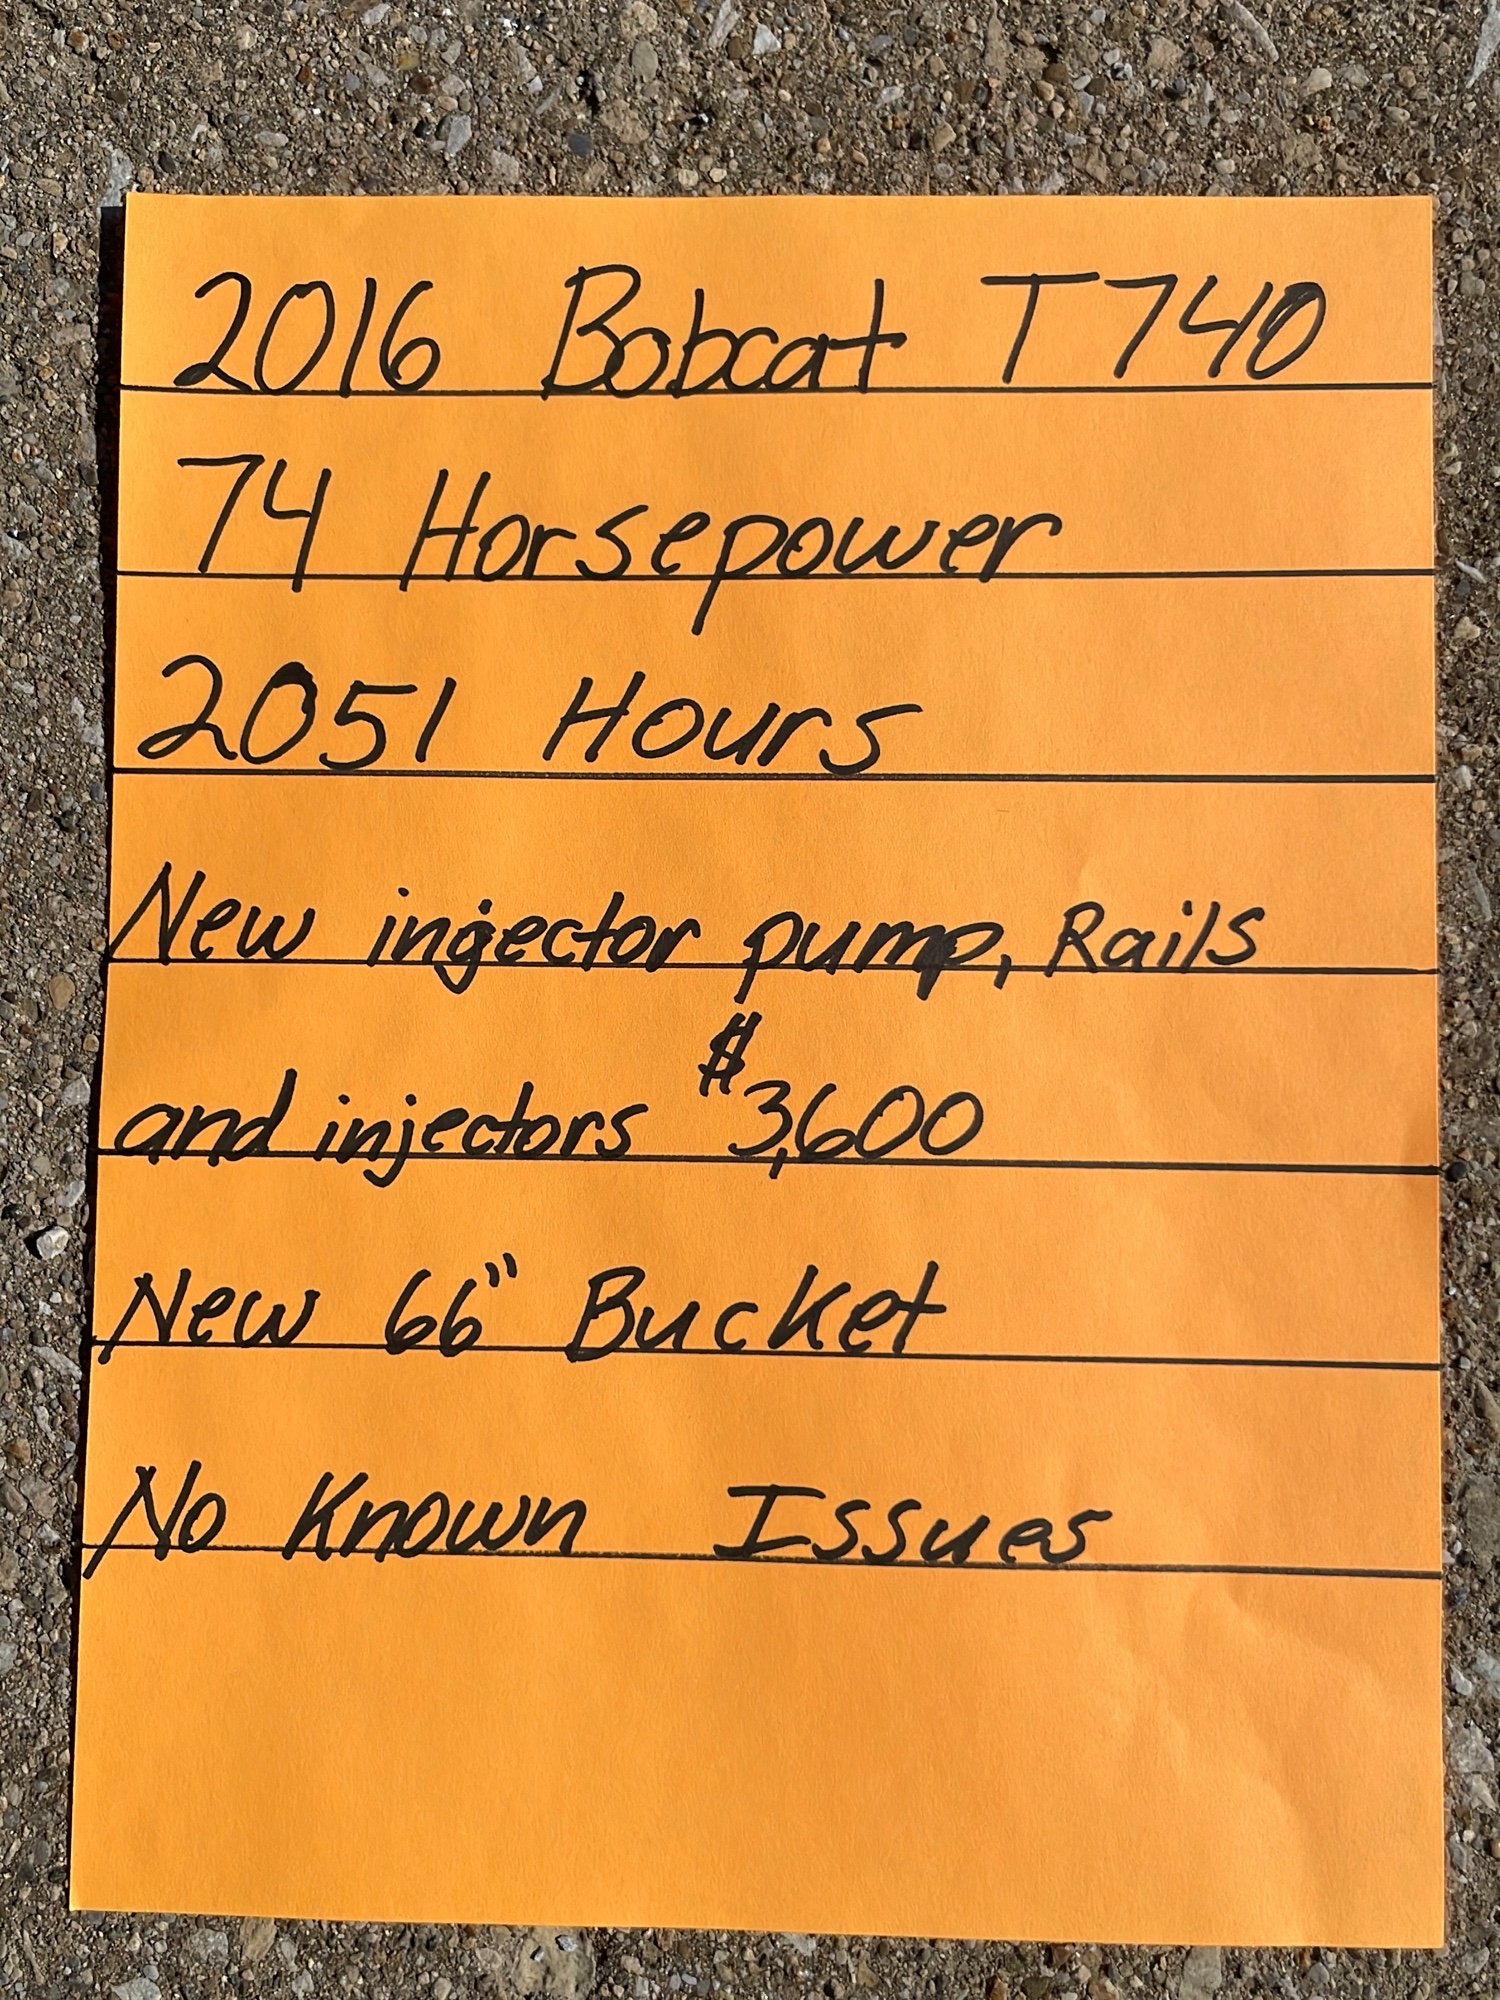 2016 Bobcat T740
74 Horsepower
2051 Hours
New injector pump, Rails
and injectors $3,600
New 66" Bucket
No Known Issues